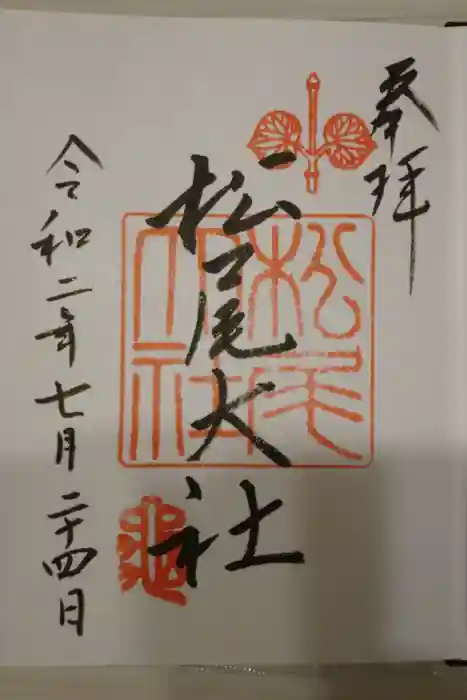 奉拝
松尾大社
松尾大社
令和二年七月二十四日